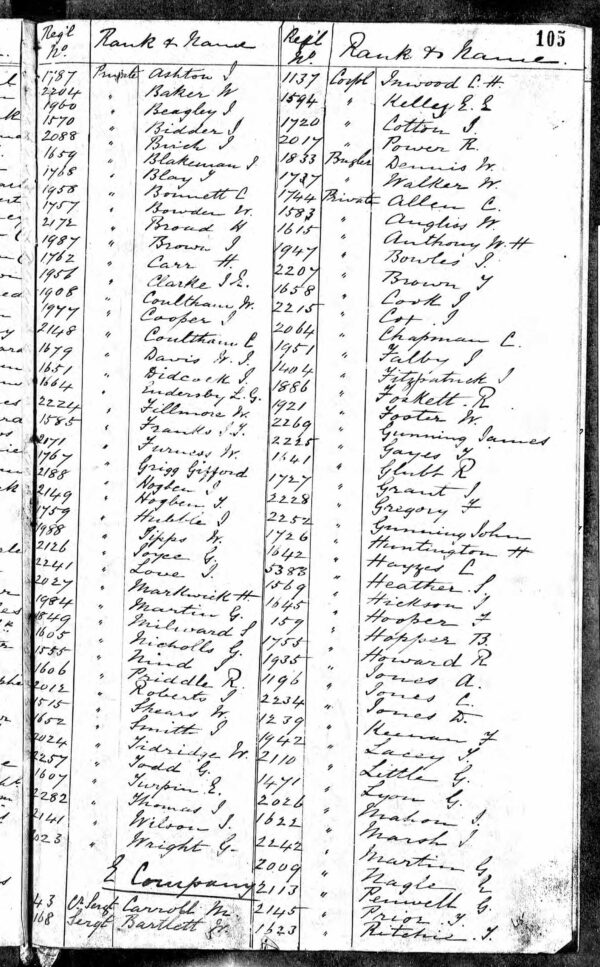 105
Reg'l No Rank & Name
1787 Private Ashton J
2204 " Baker W
1960 " Beagley J
1570 " Bidder J
2088 " Birch J
1659 " Blakeman J
1768 " Blay J
1958 " Bonnett C
1757 " Bowden W.
2172 " Broad H
1987 " Brown J
1762 " Carr H.
1956 " Clarke J.E.
1908 " Coultham W.
1977 " Cooper J
2148 " Coultham C
1679 " Davis W. J.
1651 " Didcock J.
1664 " Endersby L.G.
2224 " Fillmore W.
1585 " Franks J.J.
2071 " Furness W.
1767 " Grigg Gifford
2188 " Hogben S
2149 " Hogben T.
1759 " Hubble J
1988 " Jipps W.
2126 " Joyce G.
2241 " Love J.
2027 " Markwick H.
1984 " Martin G.
1849 " Milward S
1605 " Nicholls G.
1555 " Nind J
1606 " Priddle R.
2012 " Roberts J
1515 " Shears W.
1652 " Smith J
2024 " Tidridge W.
2257 " Todd G.
1607 " Turpin E.
2282 " Thomas J.
2141 " Wilson J.
2023 " Wright G.
E Company
43 Cr Sergt Carroll M.
168 Sergt Bartlett
Reg'l No Rank & Name.
1137 Corpl Inwood C. H.
1594 " Kelley E. E
1720 " Cotton J.
2017 " Power R.
1833 Bugler Dennis W.
1737 " Walker W.
1744 Private Allen C.
1583 " Angliss W.
1615 " Anthony W. H
1947 " Bowles J.
2207 " Brown T
1658 " Cook J
2215 " Cox J
2064 " Chapman C.
1951 " Falby J
1404 " Fitzpatrick J
1886 " Foskett R
1921 " Foster W.
2269 " Gunning James
2225 " Gayes T.
1641 " Glubb R
1727 " Grant J
2228 " Gregory F
2252 " Gunning John
1726 " Huntington H
1642 " Hayzes C
5383 " Heather S
1569 " Hickson J
1645 " Hooper F
159 " Hopper B.
1755 " Howard R
1935 " Jones A.
1196 " Jones C.
2234 " Jones D.
1239 " Keenan F
1942 " Lacey J.
2110 " Little G.
1471 " Lyon G.
2026 " Mahon J.
1622 " Marsh J
2242 " Martin G
2009 " Nagle E
2113 " Penwell G
2145 " Prior J.
1623 " Ritchie J.